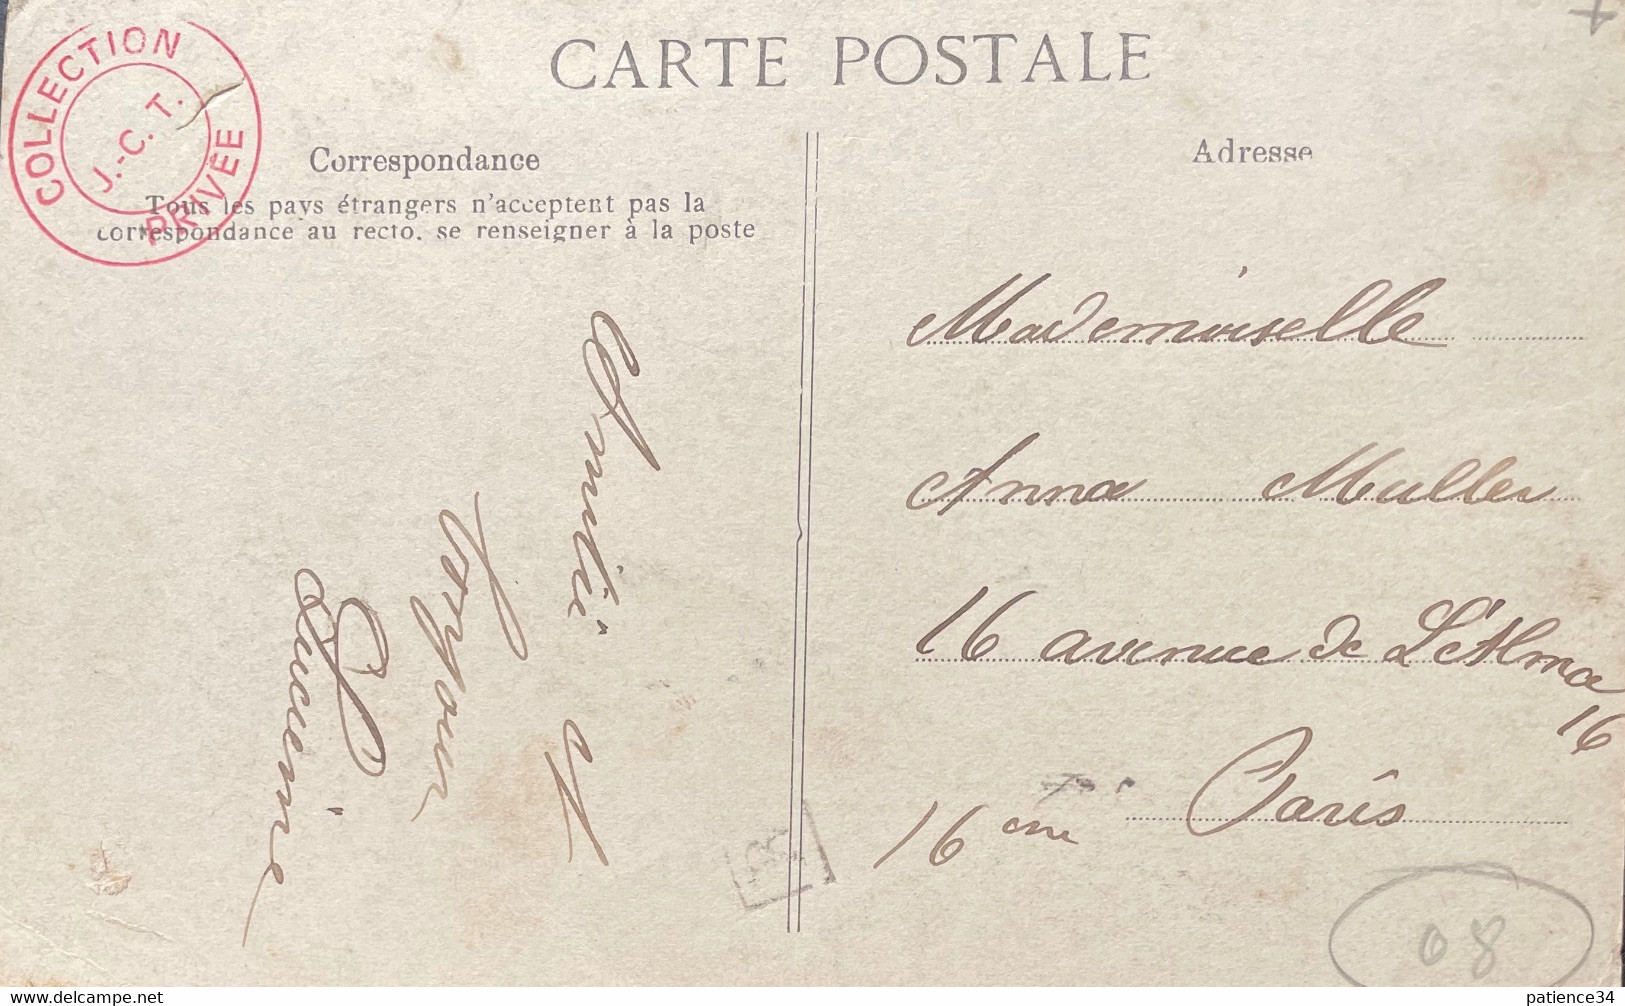 CARTE POSTALE
COLLECTION PRIVÉE
J.-C. T.
Correspondance
Tous les pays étrangers n'acceptent pas la
correspondance au recto. se renseigner à la poste
Adresse
Amitié
et
Lucienne
Mademoiselle
Anna Muller
16 avenue de L'Alma
16
16 eme Paris
08
www.delcampe.net
patience34